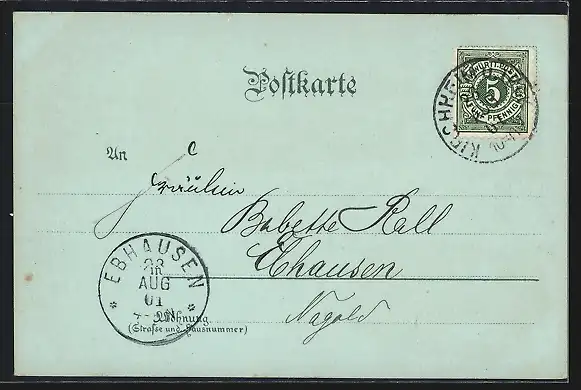 Postkarte
5
FÜNF PFENNIG
KIRCHHEIM
An
Fräulein
Babette Rall
Ebhausen
Nagold
EBHAUSEN
23
AUG
01
Wohnung
(Strasse und Hausnummer)